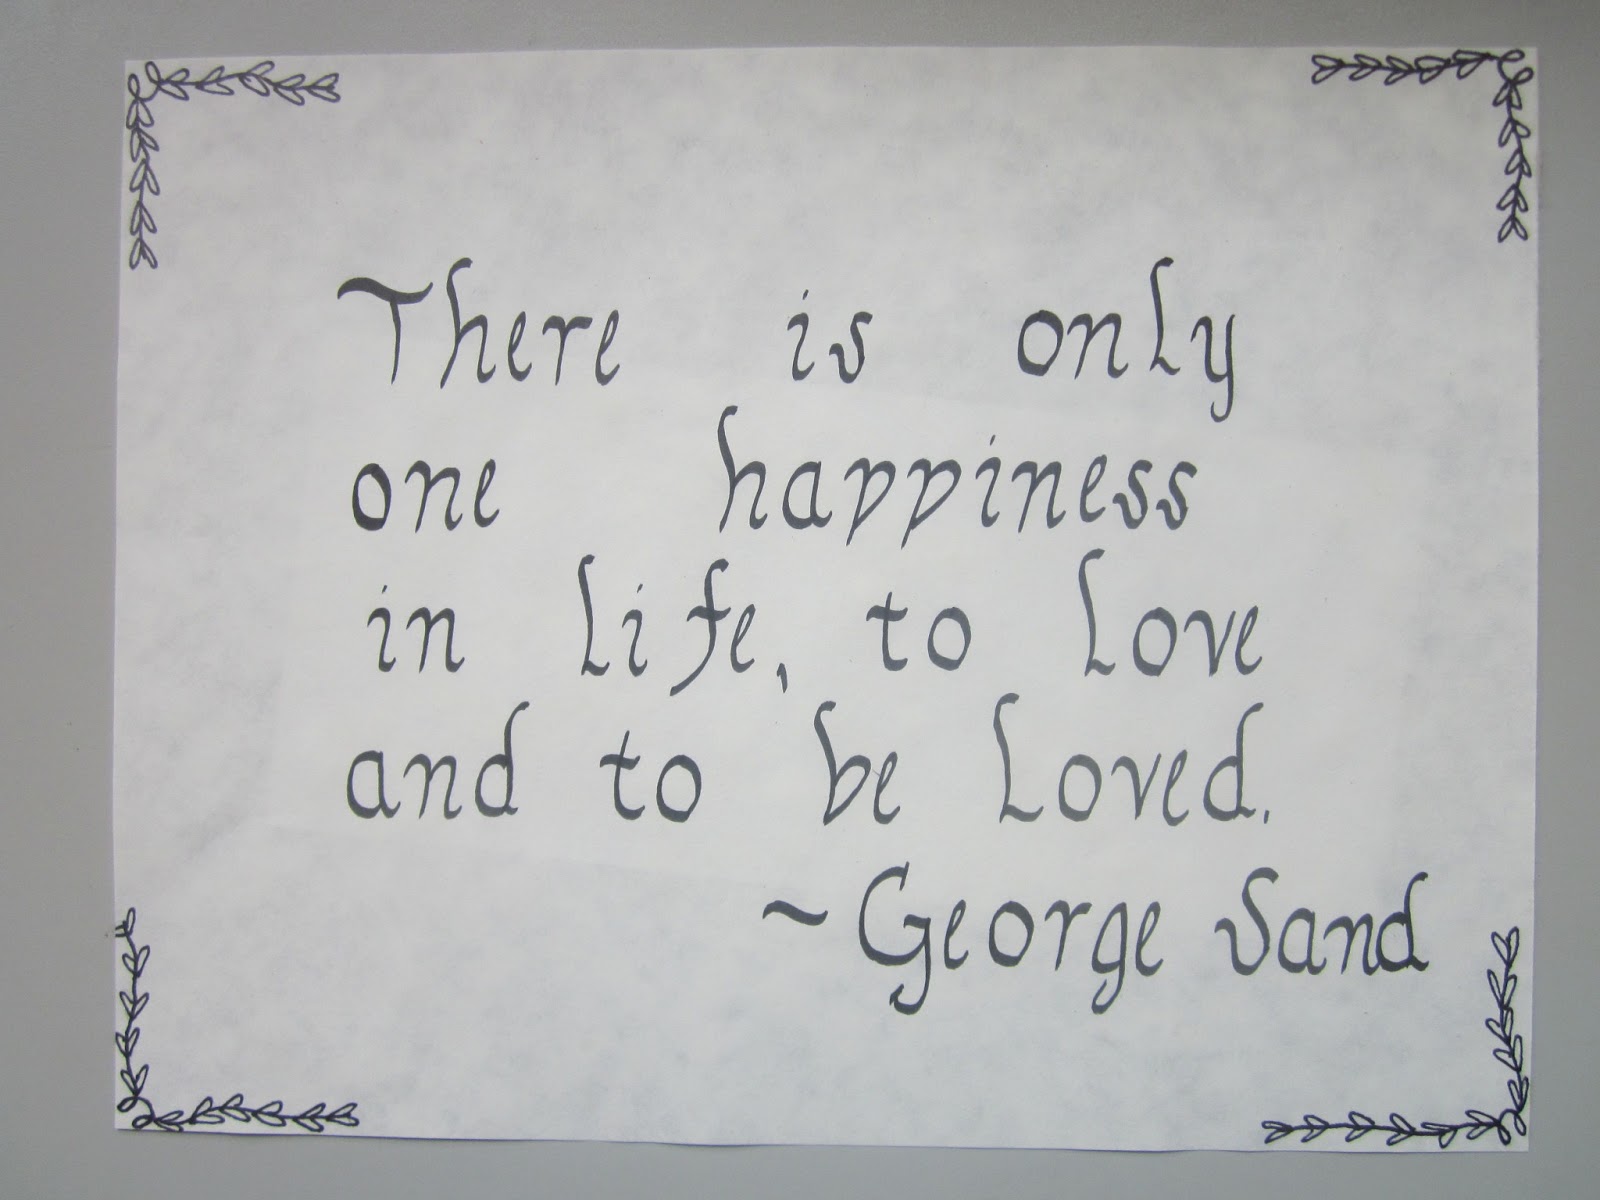 There is only
one happiness
in life, to love
and to be loved.
~George Sand